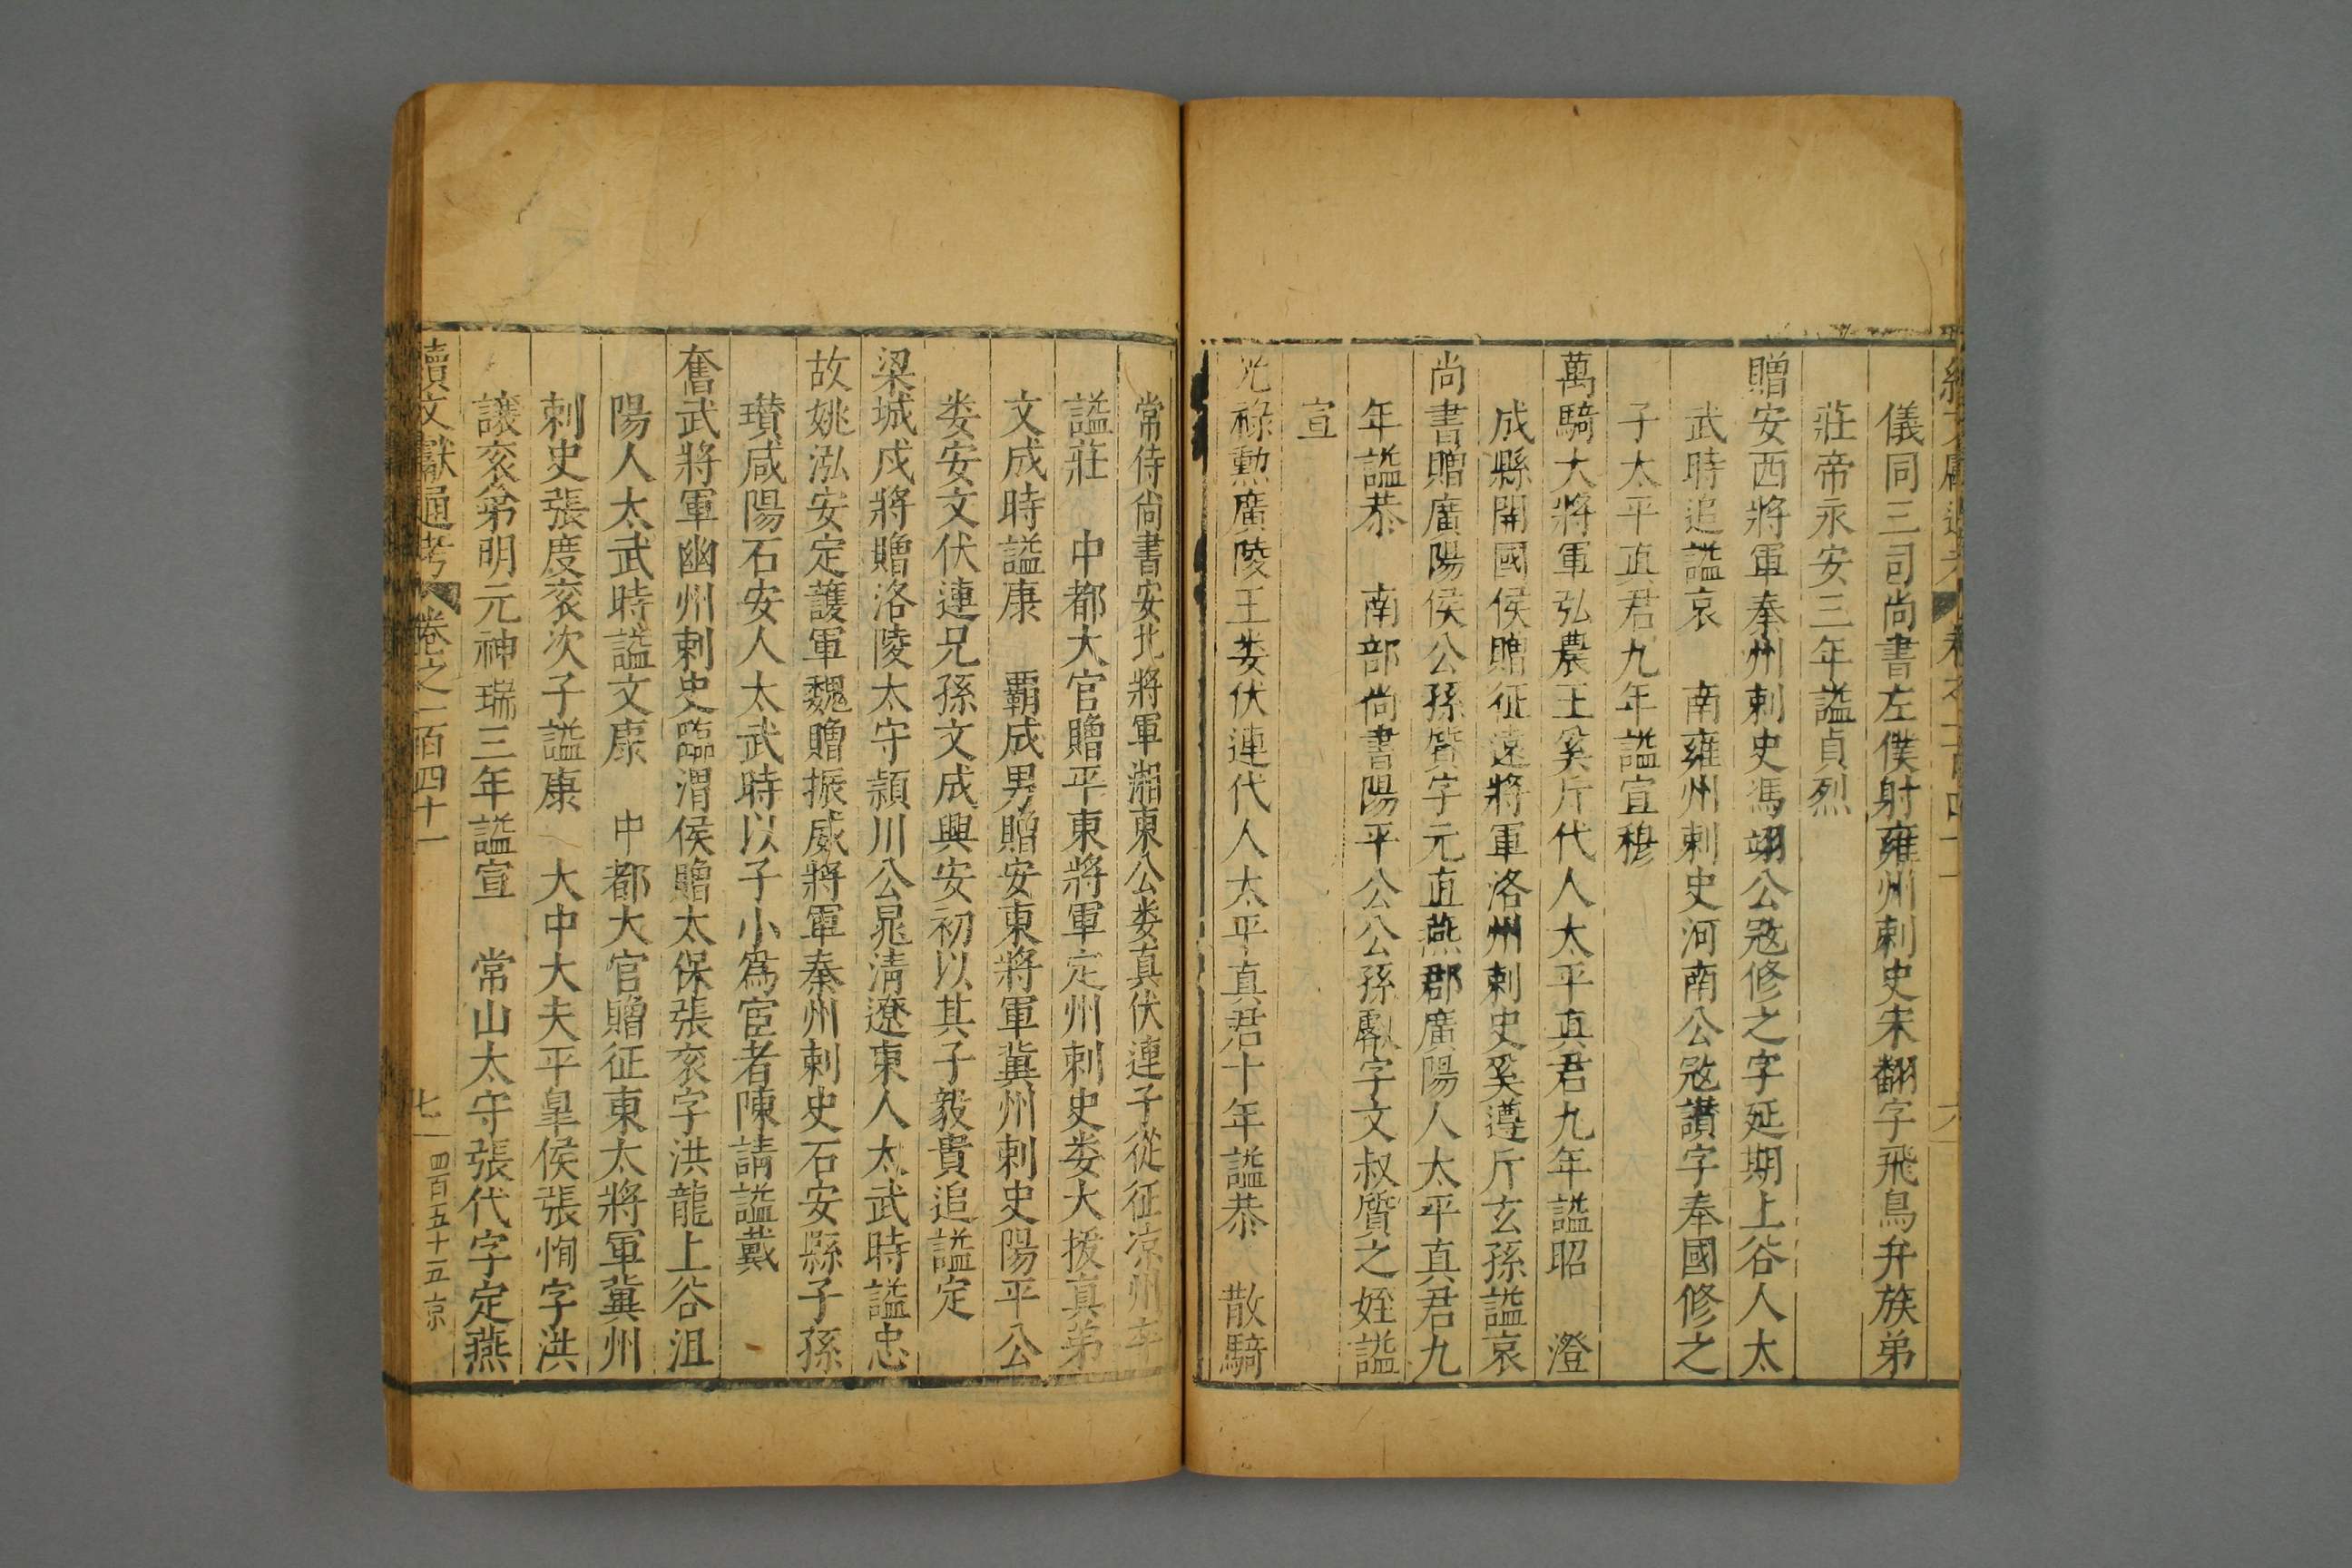 儀同三司尚書左僕射雍州刺史宋翻字飛鳥弁族弟
莊帝永安三年謚貞烈
贈安西將軍秦州刺史馮翊公寇修之字延期上谷人太
武時追謚哀　南雍州刺史河南公寇讚字奉國修之
子太平真君九年謚宣穆
萬騎大將軍弘農王奚斤代人太平真君九年謚昭　澄
成縣開國侯贈征遠將軍洛州刺史奚遵斤玄孫謚哀
尚書贈廣陽侯公孫質字元直燕郡廣陽人太平真君九
年謚恭　南部尚書陽平公公孫叡字文叔質之姪謚
宣
光祿勳廣陵王婁伏連代人太平真君十年謚恭　散騎
常侍尚書安北將軍湘東公婁真伏連子從征涼州卒
謚莊　中都大官贈平東將軍定州刺史婁大拔真弟
文成時謚康　覇成男贈安東將軍冀州刺史陽平公
婁安文伏連兄孫文成興安初以其子毅貴追謚定
梁城戍將贈洛陵太守頴川公晁清遼東人太武時謚忠
故姚泓安定護軍魏贈振威將軍秦州刺史石安縣子孫
瓚咸陽石安人太武時以子小為宦者陳請謚戴
奮武將軍幽州刺史臨渭侯贈太保張衮字洪龍上谷沮
陽人太武時謚文康　中都大官贈征東太將軍冀州
刺史張度衮次子謚康　大中大夫平臯侯張恂字洪
讓衮弟明元神瑞三年謚宣　常山太守張代字定燕
續文獻通考　卷之一百四十一　七　四百五十五　京